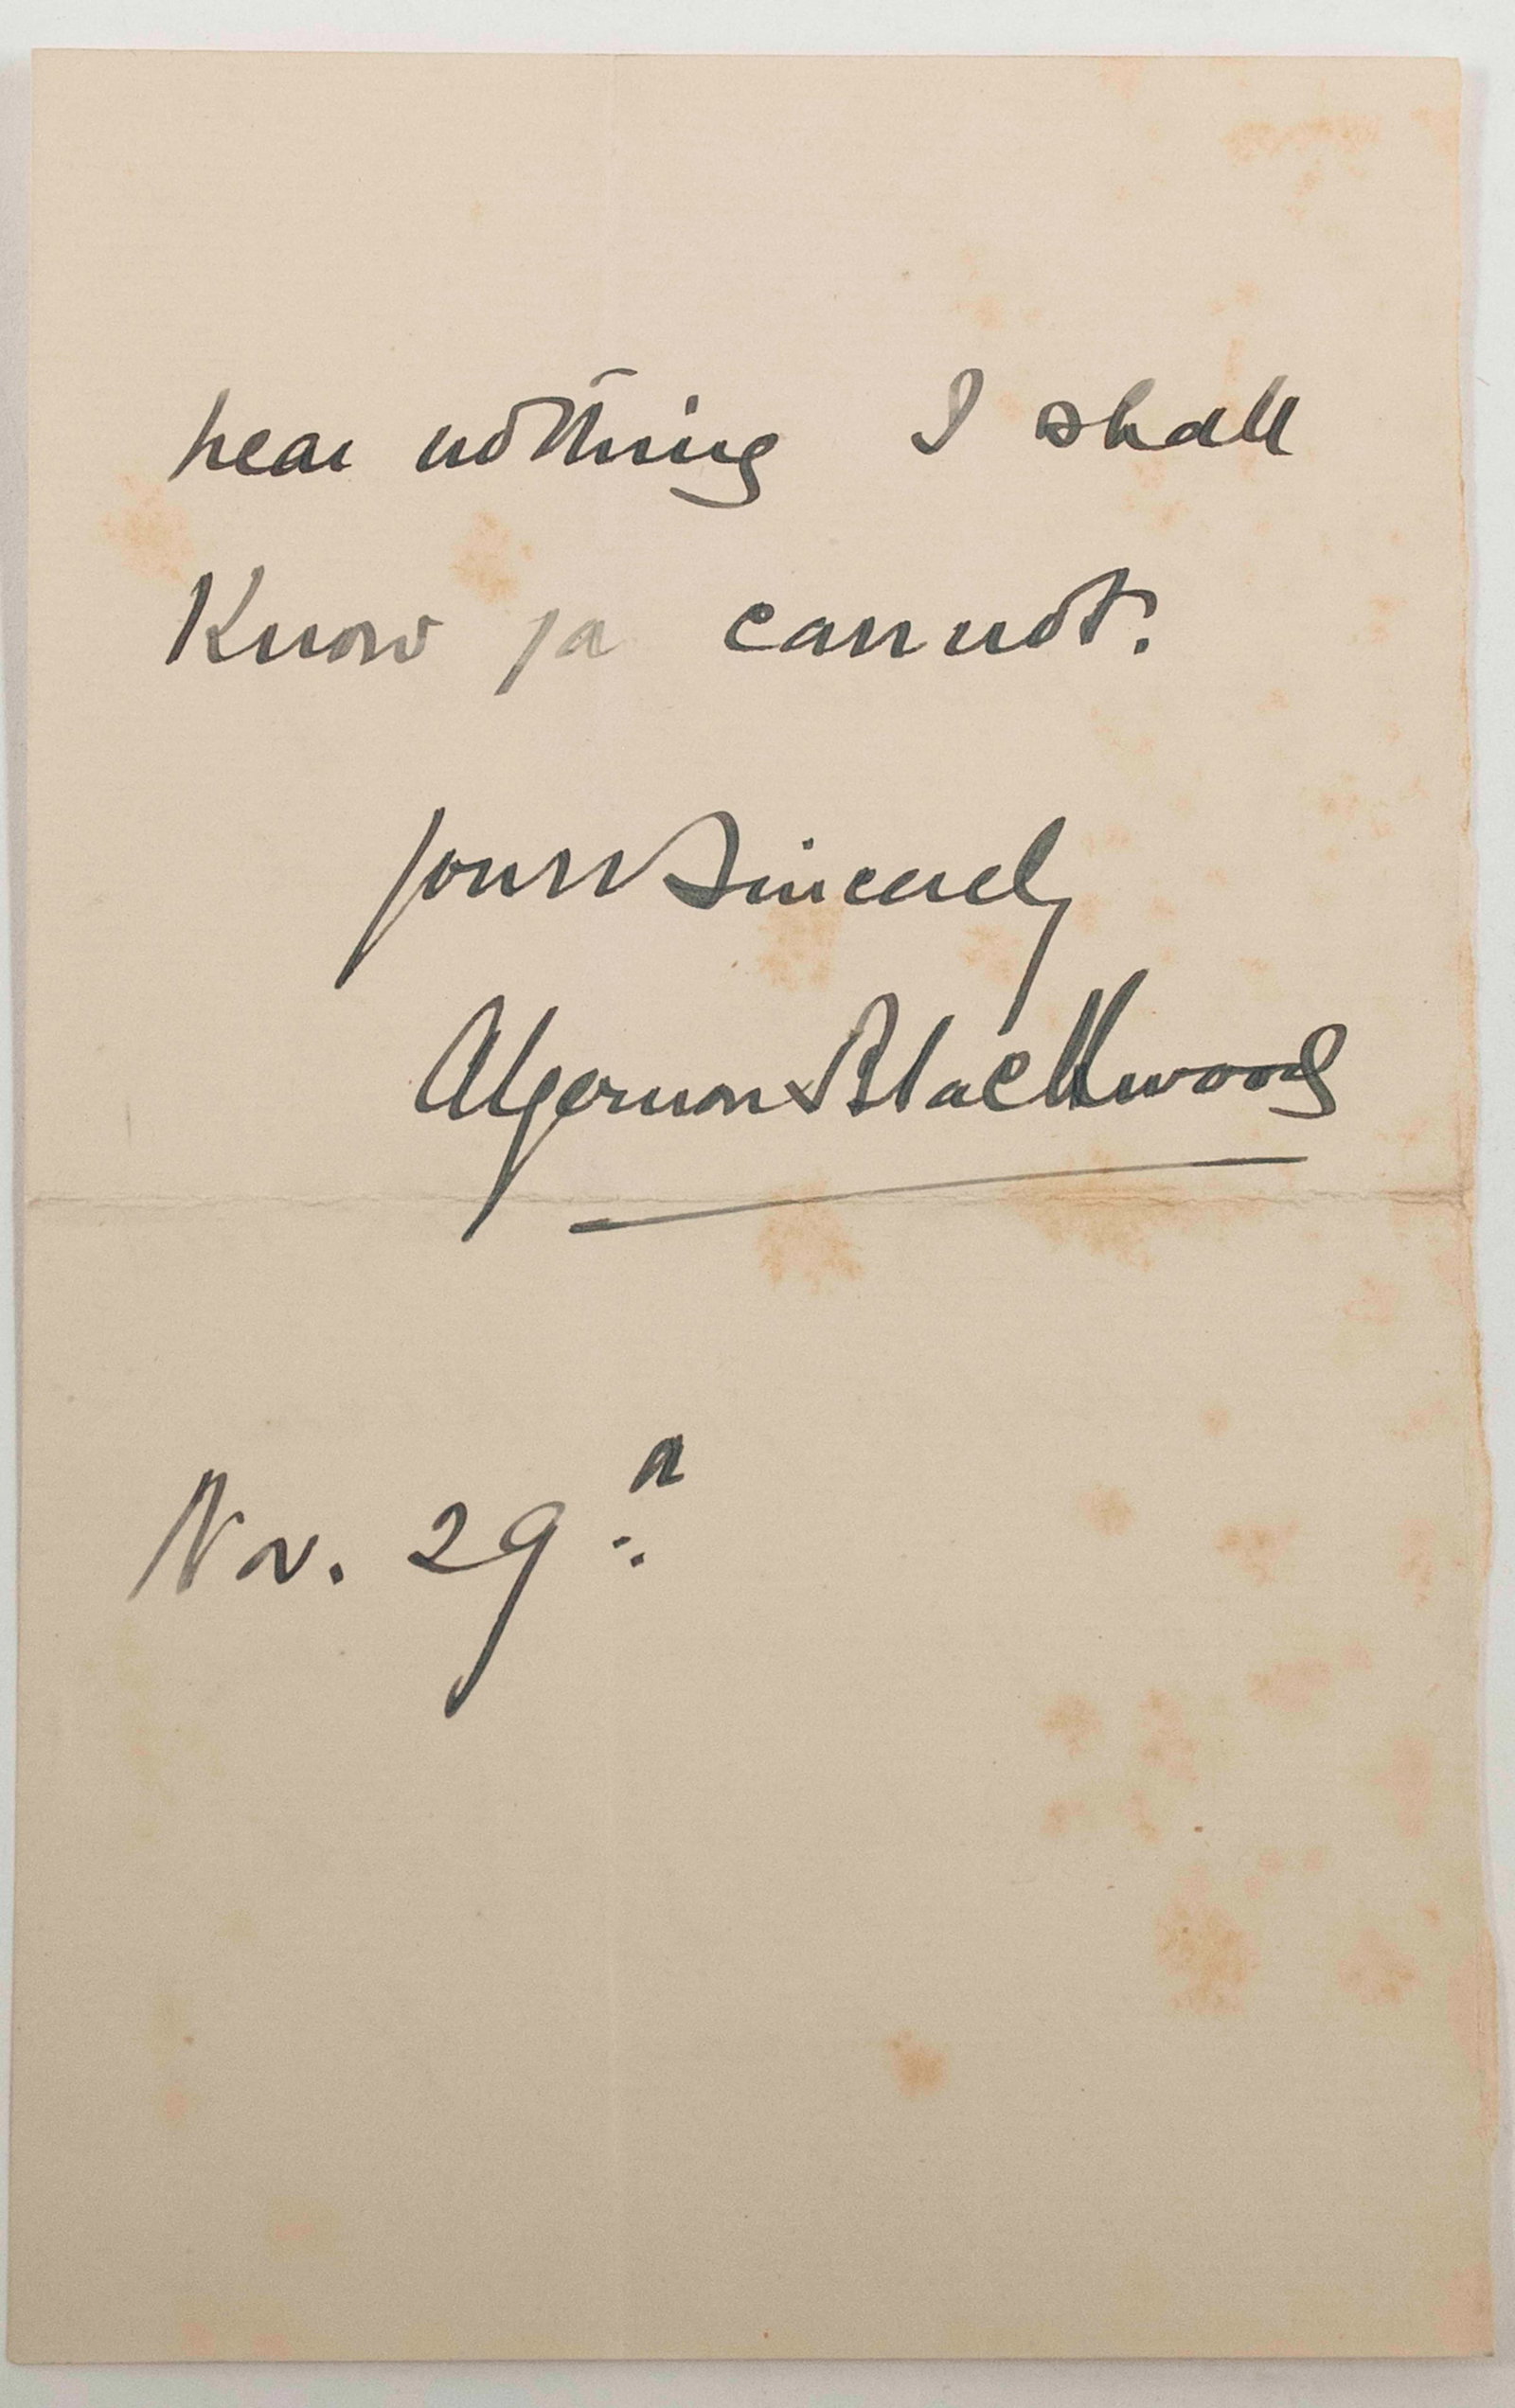 hear nothing I shall
Know you cannot.
Yours Sincerely
Algernon Blackwood
Nov. 29th